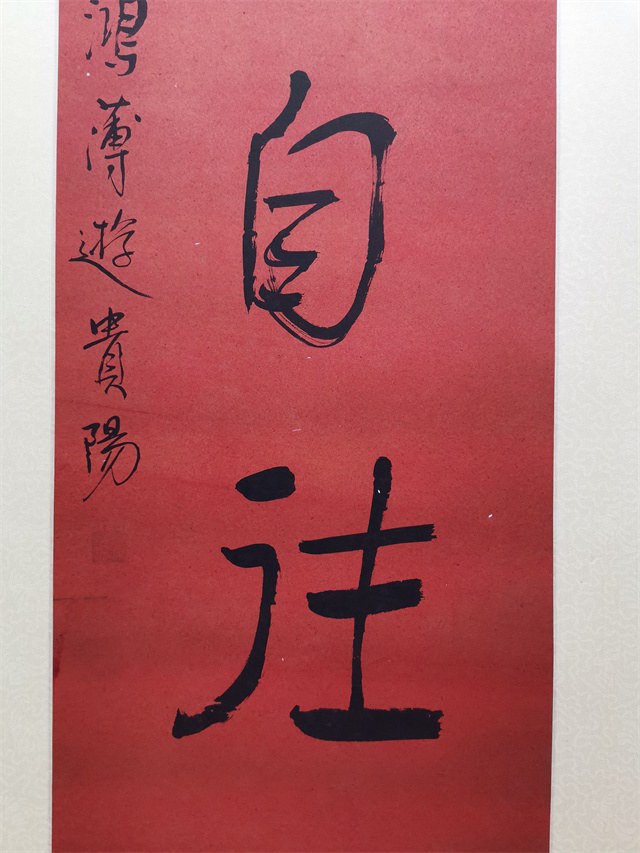 自往
鴻薄遊貴陽